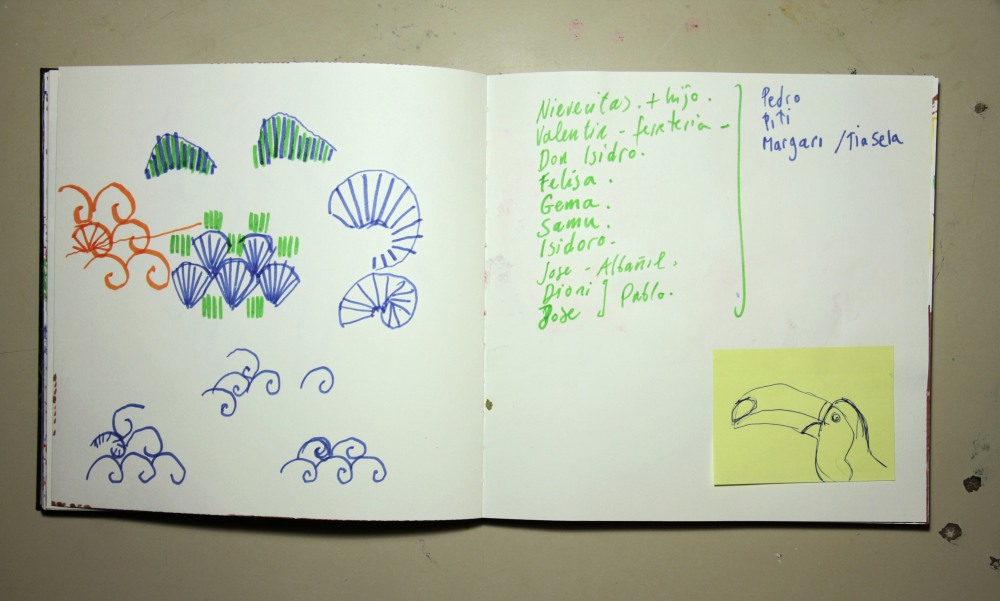 Nievecitas. + hijo.
Valentin - ferreteria -
Don Isidro.
Felisa.
Gema.
Samu.
Isidoro.
Jose - Albañil.
Dioni ] Pablo.
Jose
Pedro
Piti
Margari / Tiasela